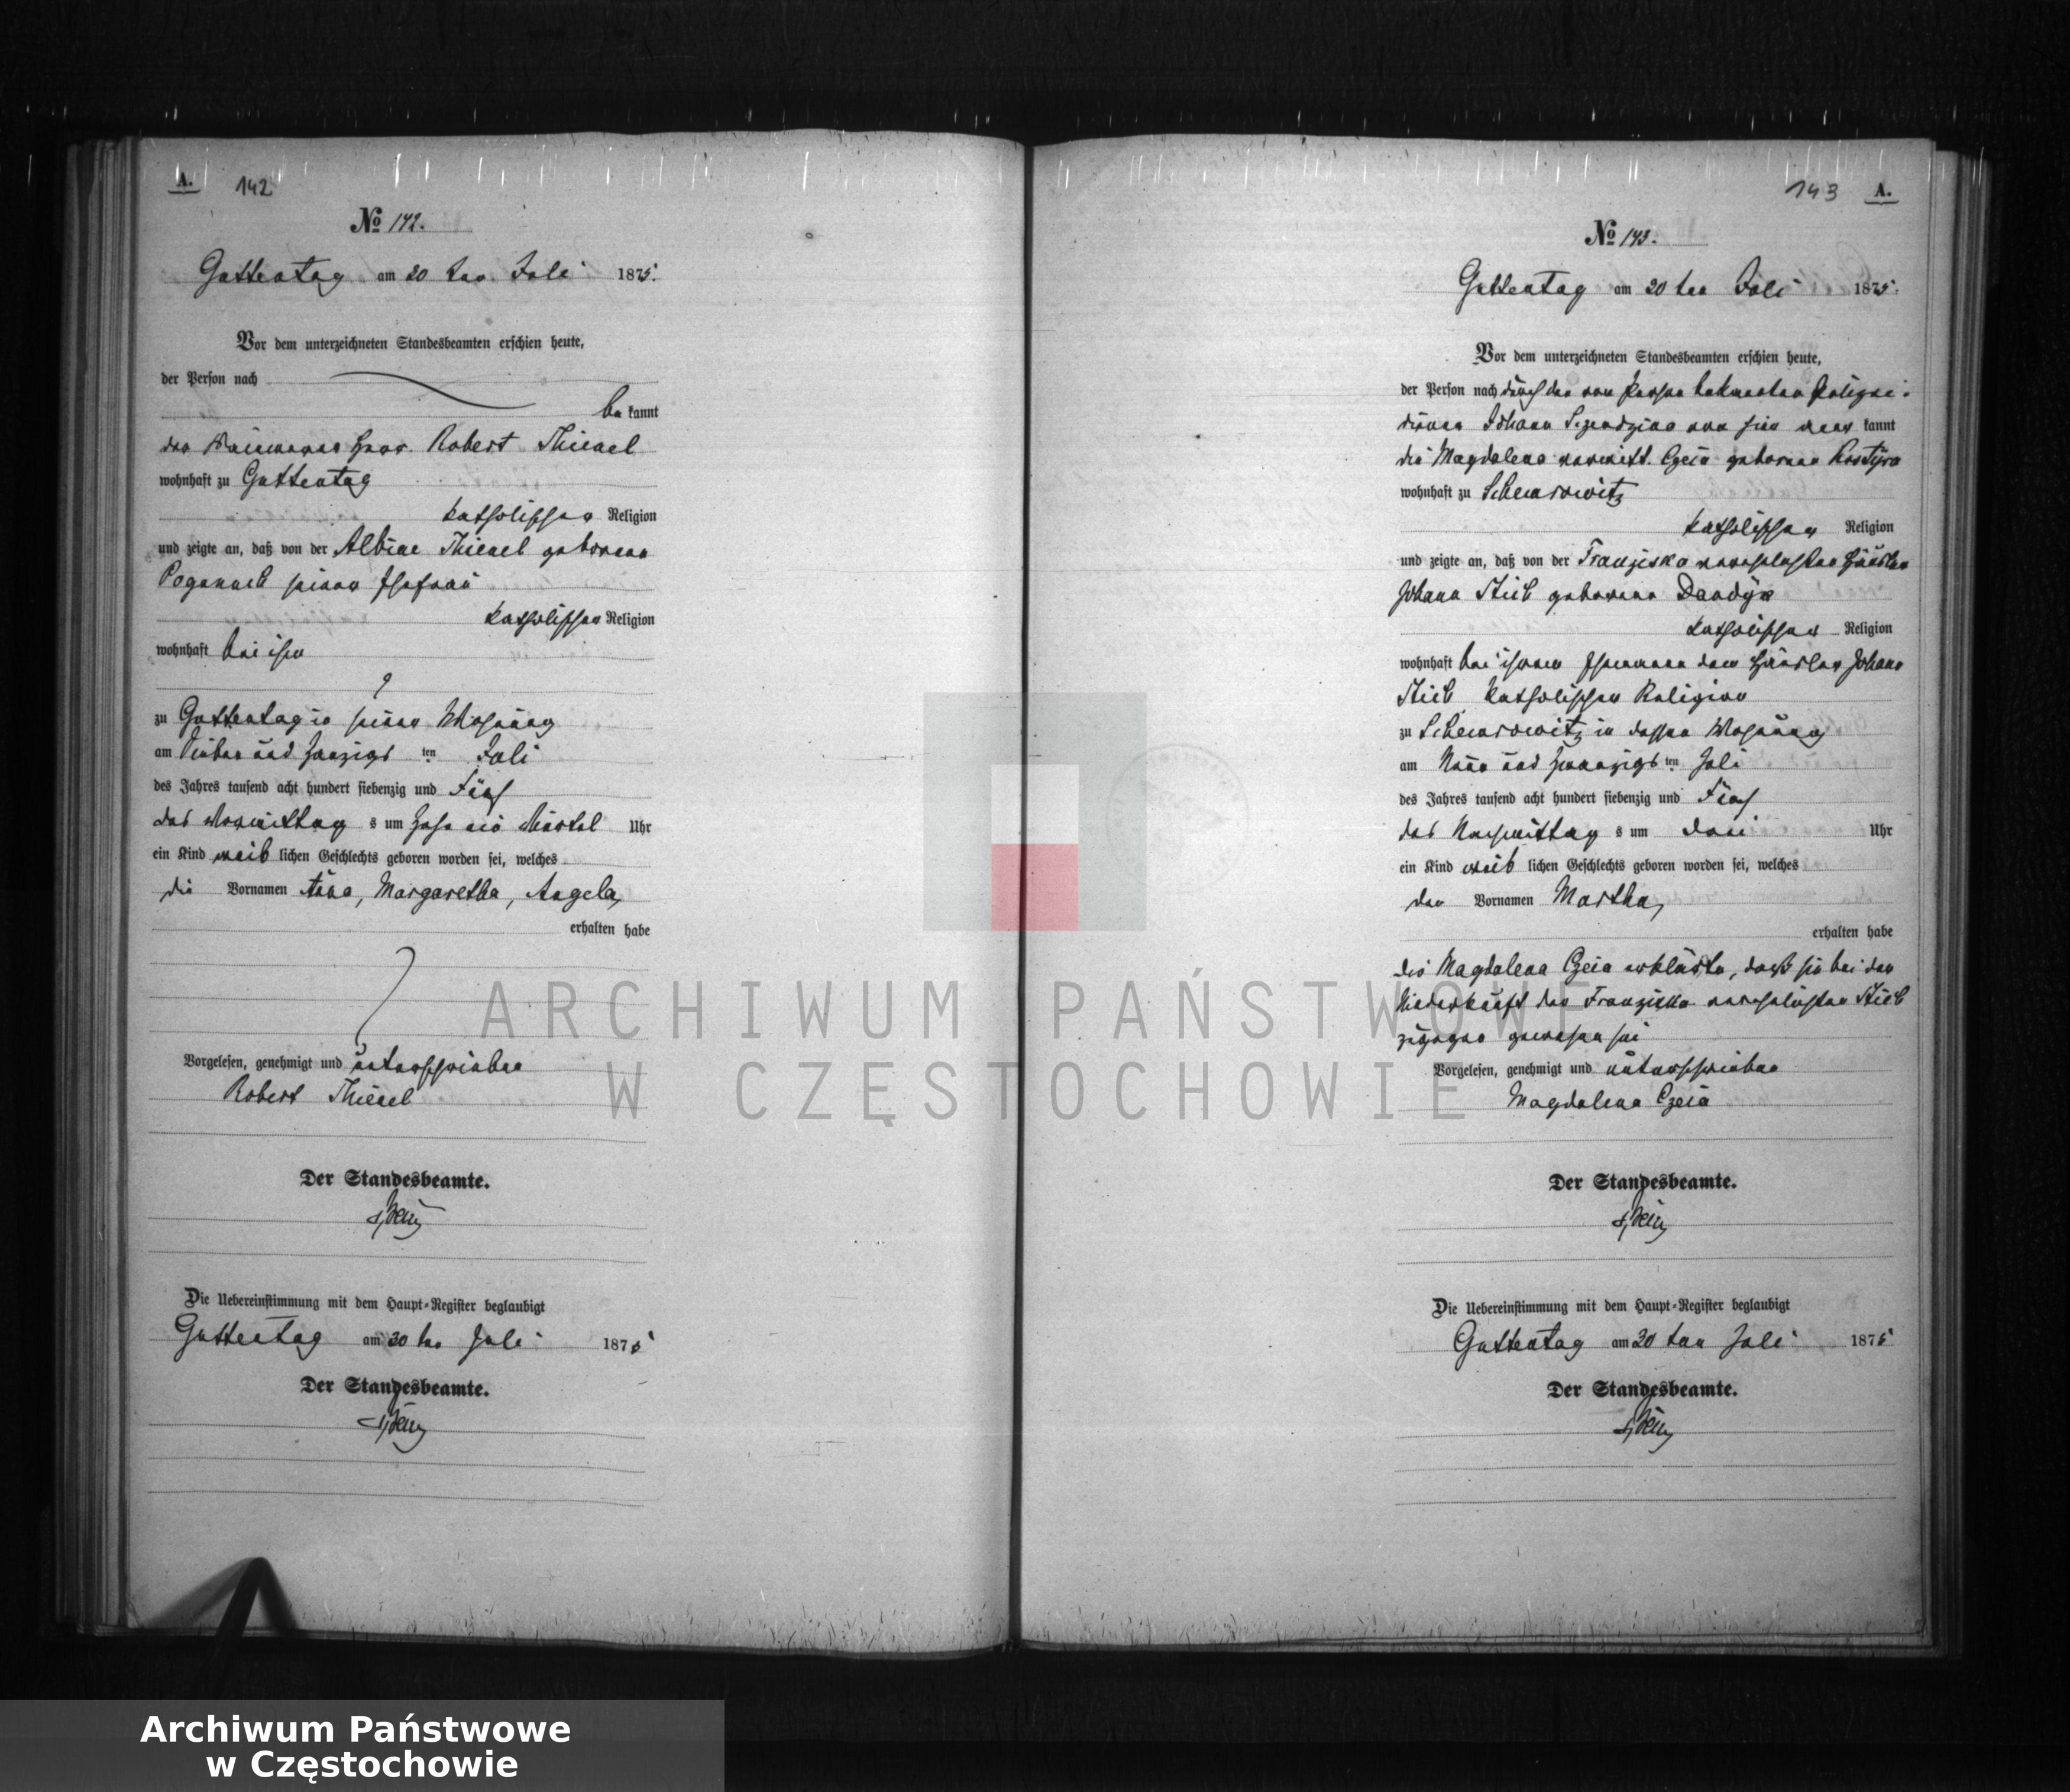 A. 142
No 142.
Guttentag am 30 ten Juli 1875.
Vor dem unterzeichneten Standesbeamten erschien heute,
der Person nach
be kannt
der Robert Thienel
wohnhaft zu Guttentag
katholischer Religion
und zeigte an, daß von der Albine Thienel geborene
seiner Ehefrau
katholischer Religion
wohnhaft bei ihm
zu Guttentag in seiner Wohnung
am Sieben und zwanzigs ten Juli
des Jahres tausend acht hundert siebenzig und Fünf
des Vormittag s um Uhr
ein Kind weib lichen Geschlechts geboren worden sei, welches
die Vornamen Anna, Margaretha, Angela,
erhalten habe
Vorgelesen, genehmigt und unterschrieben
Robert Thienel
Der Standesbeamte.
Die Uebereinstimmung mit dem Haupt-Register beglaubigt
Guttentag am 30 ten Juli 1875
Der Standesbeamte.
143 A.
No 143.
Guttentag am 30 ten Juli 1875.
Vor dem unterzeichneten Standesbeamten erschien heute,
der Person nach durch den von Person bekannten Polizei-
diener Johann von hier aner kannt
die Magdalena verwitt. Czeia geborene Kostyra
wohnhaft zu Schemrowitz
katholischer Religion
und zeigte an, daß von der Franziska verehelichten Häusler
Johann Stieb geborene Dandyk
katholischer Religion
wohnhaft bei ihrem Ehemanne dem Häusler Johann
Stieb katholischer Religion
zu Schemrowitz in dessen Wohnung
am Neun und zwanzigs ten Juli
des Jahres tausend acht hundert siebenzig und Fünf
des Nachmittag s um drei Uhr
ein Kind weib lichen Geschlechts geboren worden sei, welches
den Vornamen Martha,
erhalten habe
die Magdalena Czeia erklärte, daß sie bei der
Niederkunft der Franziska verehelichten Stieb
zugegen gewesen sei
Vorgelesen, genehmigt und unterschrieben
Magdalena Czeia
Der Standesbeamte.
Die Uebereinstimmung mit dem Haupt-Register beglaubigt
Guttentag am 30 ten Juli 1875
Der Standesbeamte.
ARCHIWUM PAŃSTWOWE
W CZĘSTOCHOWIE
Archiwum Państwowe
w Częstochowie